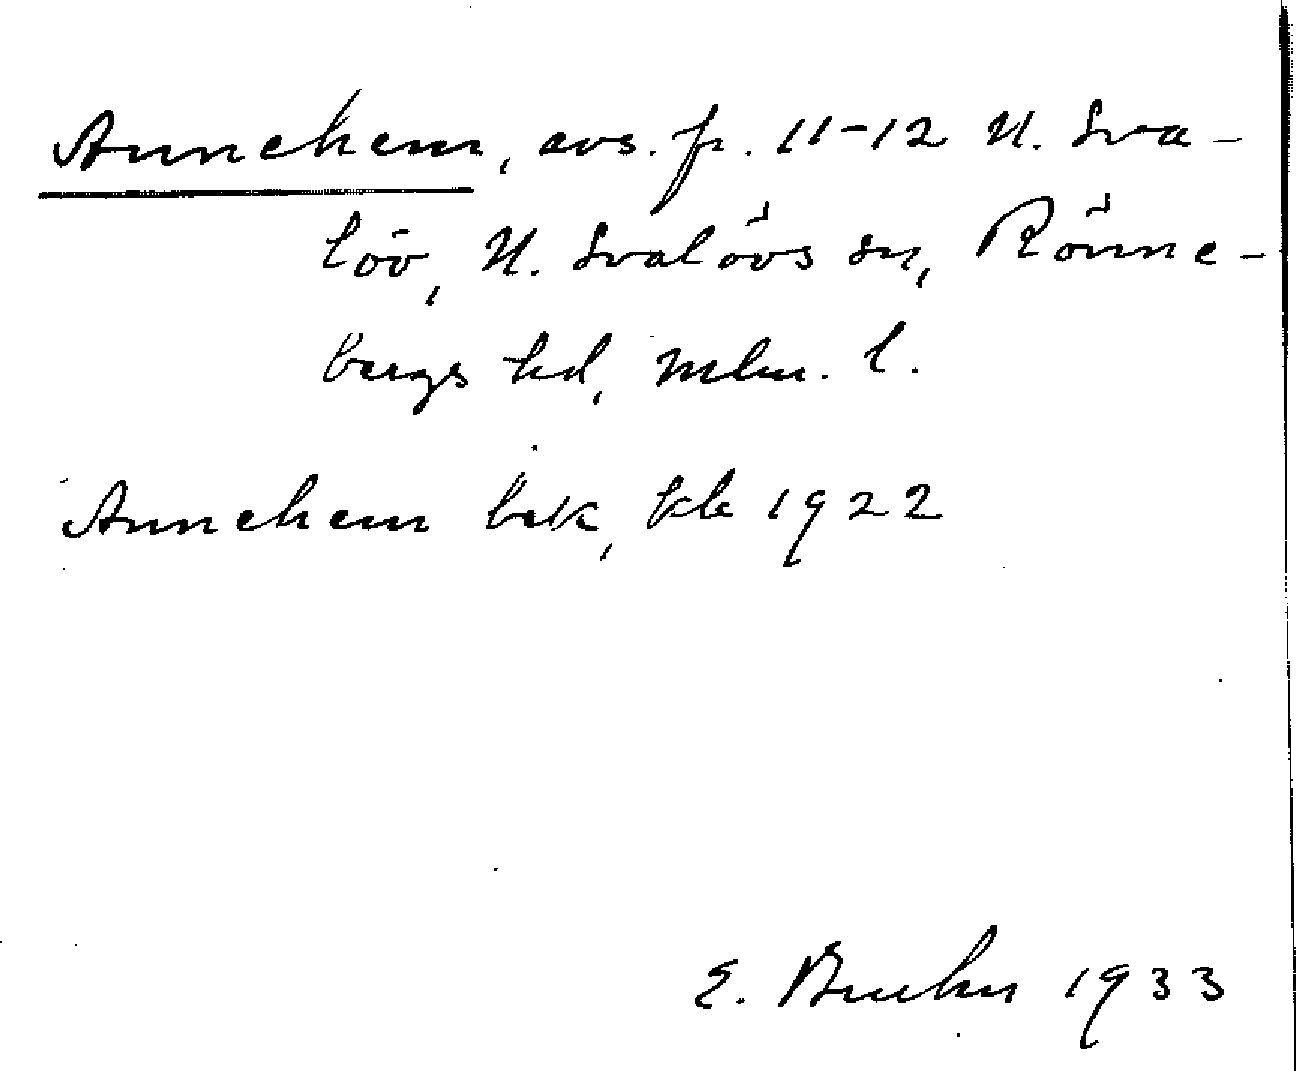 Annehem, avs. fr. 11-12 N. Sva-
löv, N. Svalövs sn, Rönne-
bergs hd, Mlm. l.
Annehem brk, kb 1922
E. Bruhn 1933